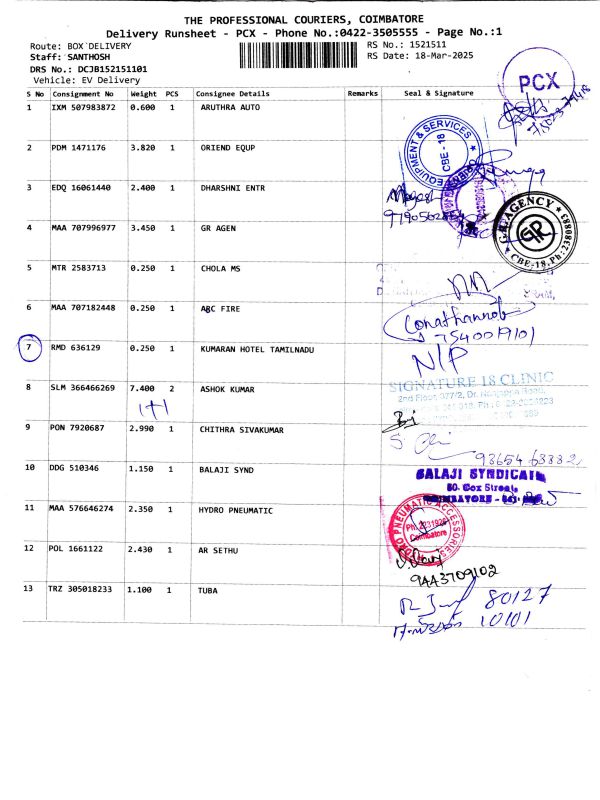 THE PROFESSIONAL COURIERS, COIMBATORE
Delivery Runsheet - PCX - Phone No.:0422-3505555 - Page No.:1
Route: BOX DELIVERY RS No.: 1521511
Staff: SANTHOSH RS Date: 18-Mar-2025
DRS No.: DCJB152151101
Vehicle: EV Delivery
S No Consignment No Weight PCS Consignee Details Remarks Seal & Signature
PCX
1 IXM 507983872 0.600 1 ARUTHRA AUTO
2 PDM 1471176 3.820 1 ORIEND EQUP
EQUIPMENT & SERVICES
CBE - 18
3 EDQ 16061440 2.400 1 DHARSHNI ENTR
4 MAA 707996977 3.450 1 GR AGEN
G.R. AGENCY
GR
CBE-18. Ph: 2380883
5 MTR 2583713 0.250 1 CHOLA MS
6 MAA 707182448 0.250 1 ABC FIRE
7540019101
7 RMD 636129 0.250 1 KUMARAN HOTEL TAMILNADU
N/P
8 SLM 366466269 7.400 2 ASHOK KUMAR
1+1
SIGNATURE 18 CLINIC
9 PON 7920687 2.990 1 CHITHRA SIVAKUMAR
10 DDG 510346 1.150 1 BALAJI SYND
BALAJI SYNDICATE
Cox Street,
COIMBATORE
11 MAA 576646274 2.350 1 HYDRO PNEUMATIC
HYDRO PNEUMATIC ACCESSORIES
Coimbatore
12 POL 1661122 2.430 1 AR SETHU
9443709102
13 TRZ 305018233 1.100 1 TUBA
80127
10101